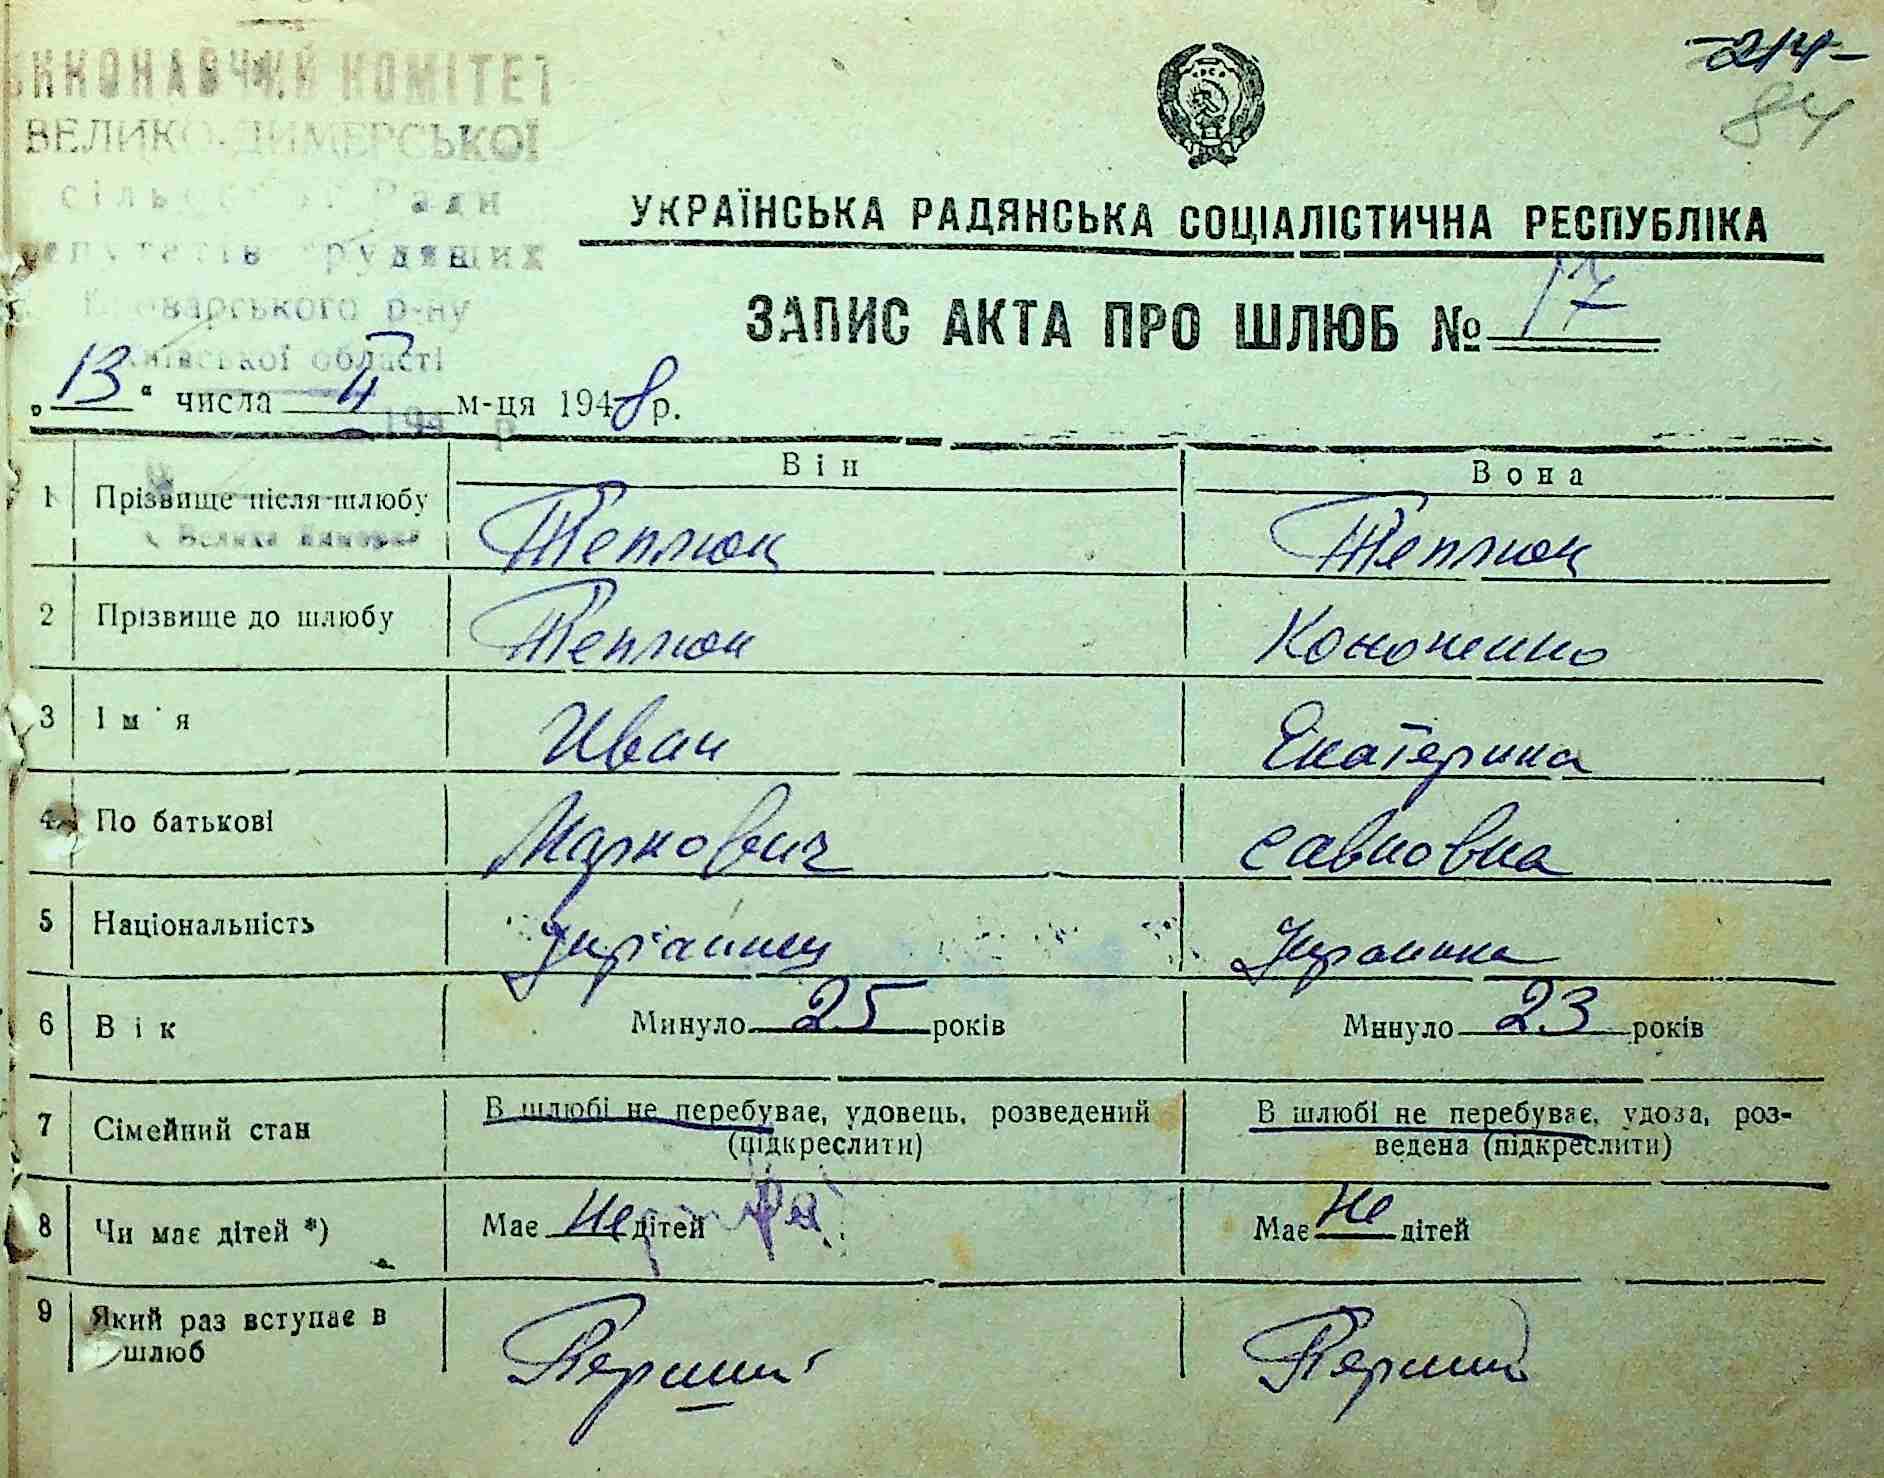 ВИКОНАВЧИЙ КОМІТЕТ
ВЕЛИКО-ДИМЕРСЬКОЇ
сільської Ради
депутатів трудящих
Броварського р-ну
Київської області
-214-
84
УКРАЇНСЬКА РАДЯНСЬКА СОЦІАЛІСТИЧНА РЕСПУБЛІКА
ЗАПИС АКТА ПРО ШЛЮБ № 17
„13“ числа II м-ця 1948 р.
Він Вона
1 Прізвище після шлюбу Теплюк Теплюк
2 Прізвище до шлюбу Теплюк Кононенко
3 Ім'я Иван Екатерина
4 По батькові Маркович Савковна
5 Національність Украинец Украинка
6 Вік Минуло 25 років Минуло 23 років
7 Сімейний стан В шлюбі не перебуває, удовець, розведений В шлюбі не перебуває, удова, роз-
(підкреслити) ведена (підкреслити)
8 Чи має дітей *) Має не дітей Має не дітей
9 Який раз вступає в Перший Перший
шлюб